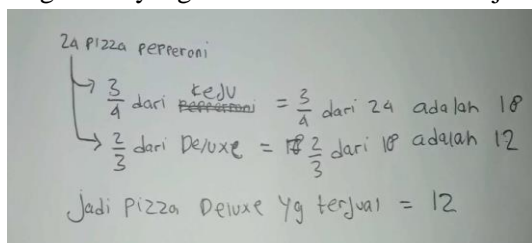 24 pizza pepperoni
3/4 dari keju = 3/4 dari 24 adalah 18
2/3 dari Deluxe = 2/3 dari 18 adalah 12
Jadi pizza Deluxe yg terjual = 12